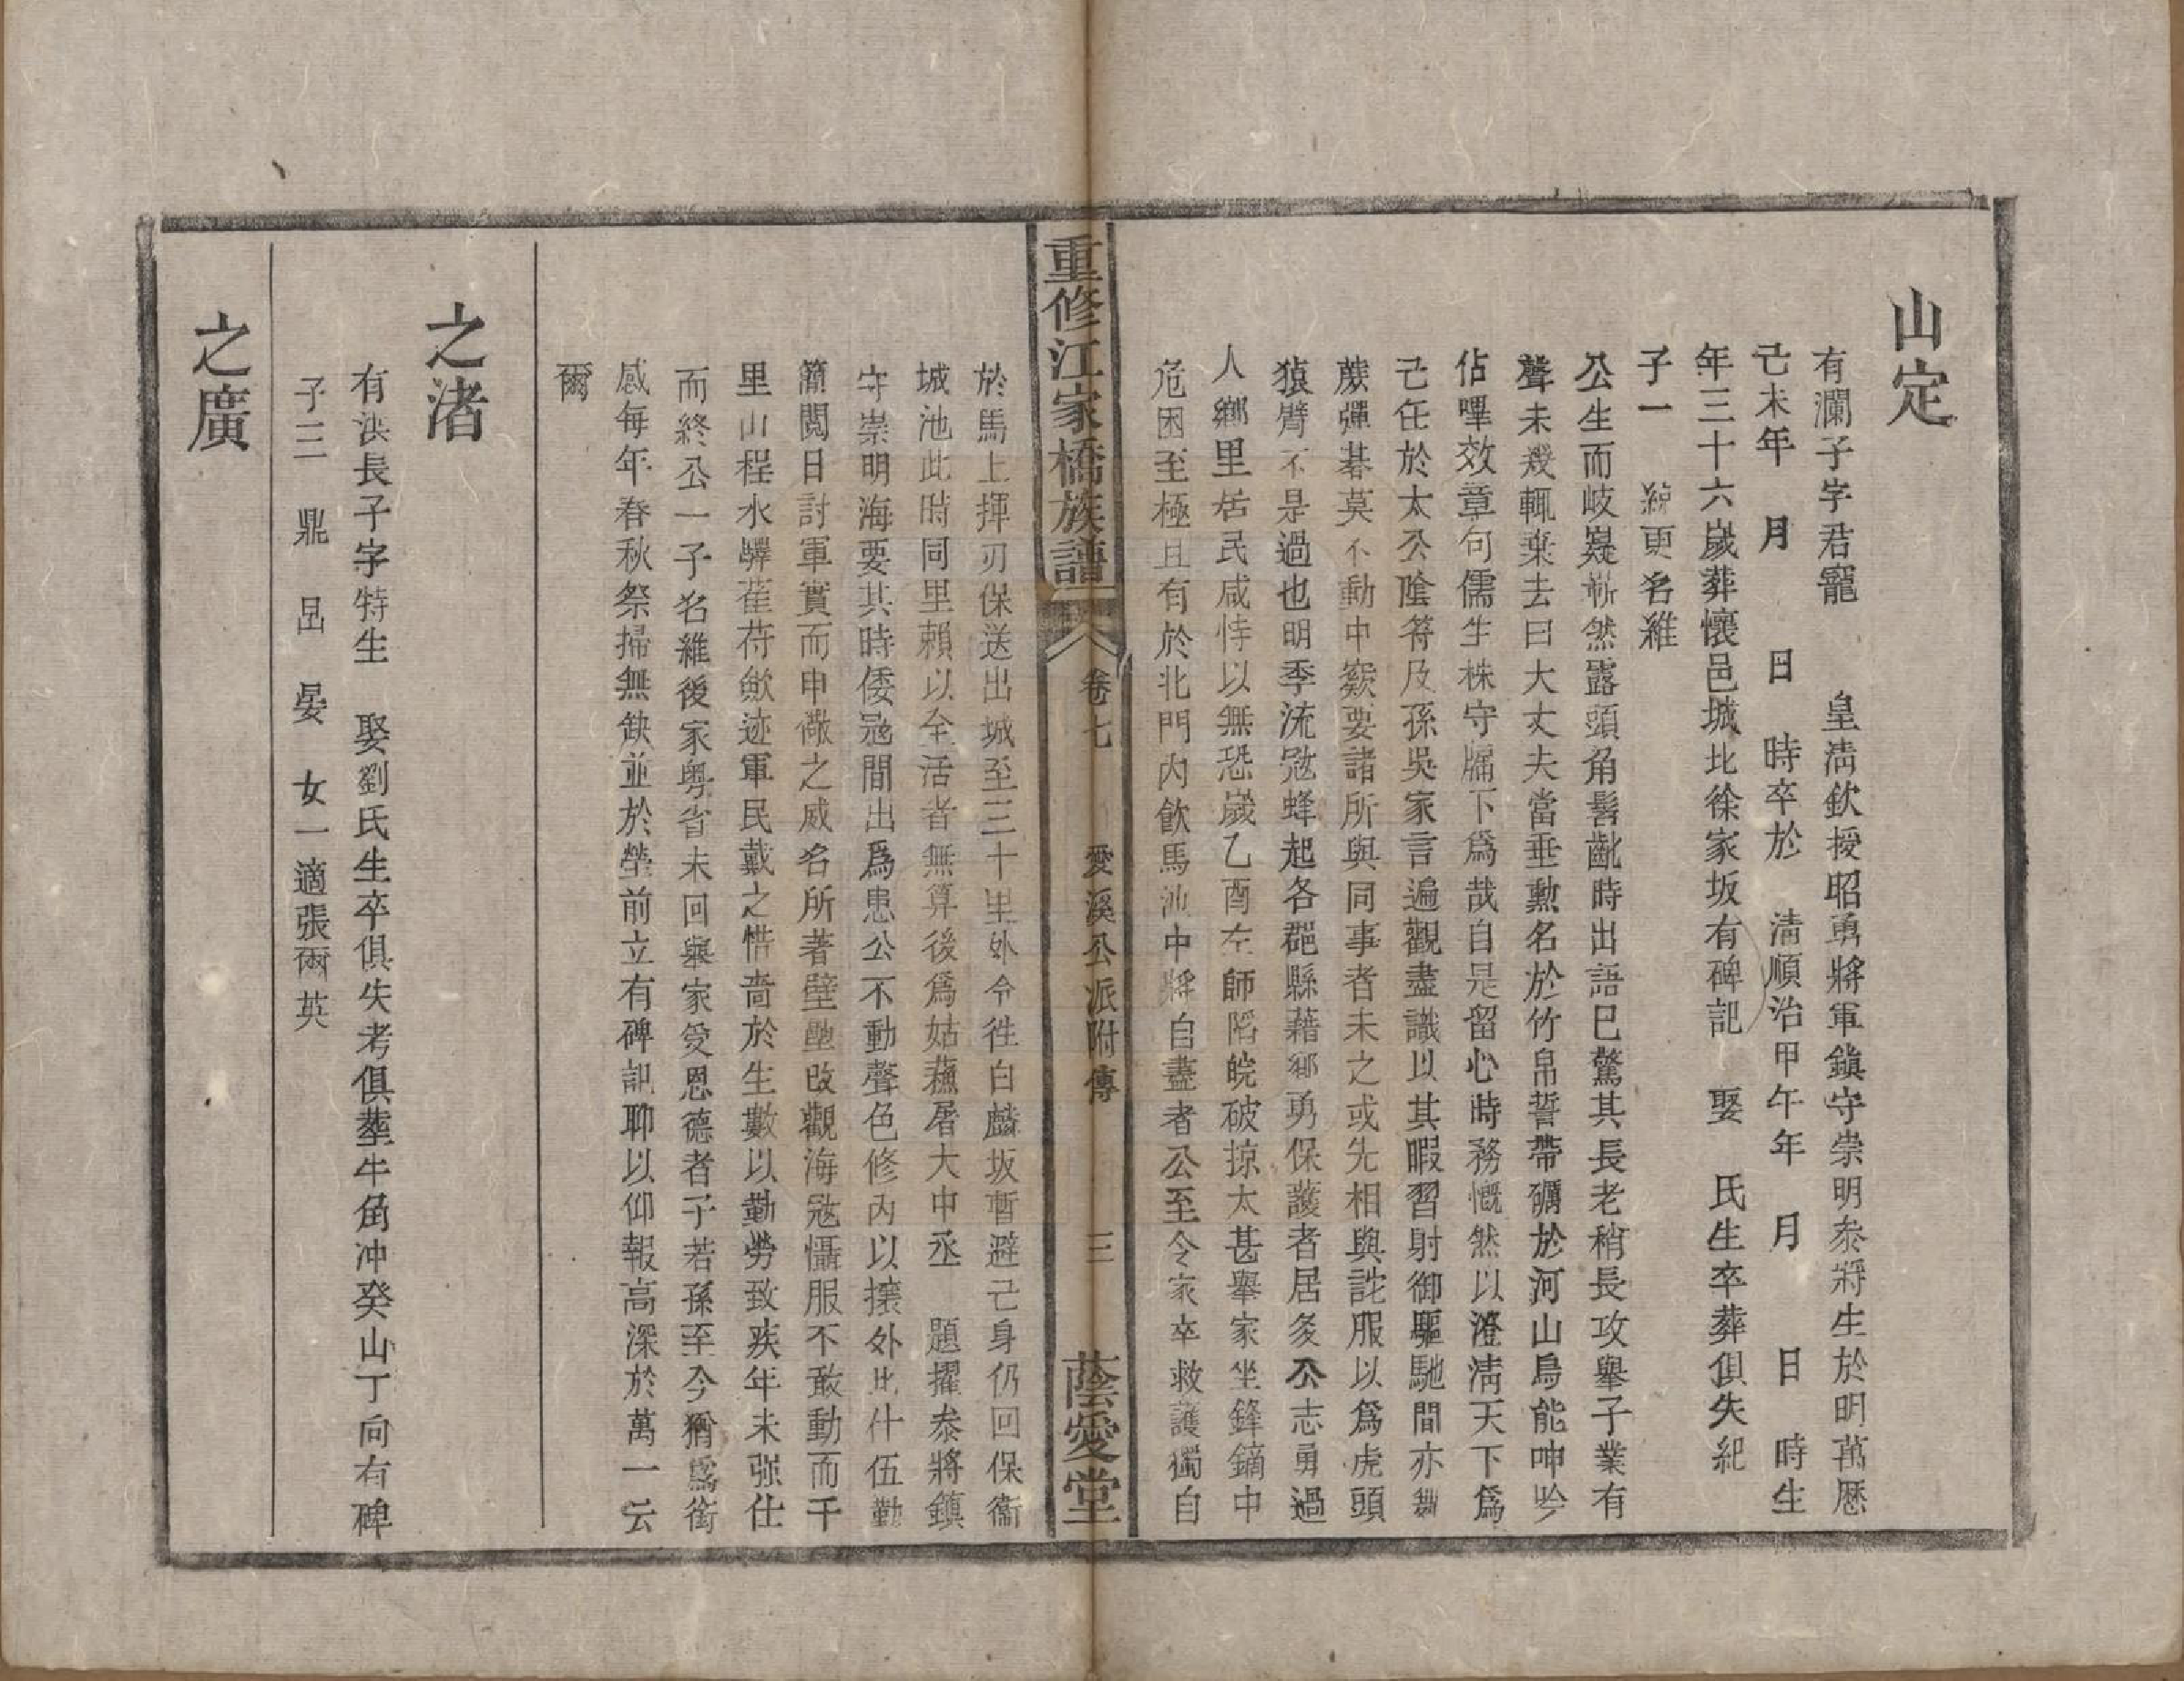 山定
有瀾子字君寵　皇淸欽授昭勇將軍鎭守崇明叅將生於明萬厯
己未年　月　日　時卒於　淸順治甲午年　月　日　時生
年三十六歲葬懷邑城北徐家坂有碑記　娶　氏生卒葬俱失紀
子一　綂更名維
公生而岐嶷嶄然露頭角髫齔時出語已驚其長老稍長攻舉子業有
聲未幾輒棄去曰大丈夫當垂勲名於竹帛誓帶礪於河山烏能呻吟
佔嗶效章句儒生株守牖下爲哉自是留心時務慨然以澄淸天下爲
己任於太公陰符及孫吳家言遍觀盡識以其暇習射御驅馳間亦
蹴彈碁莫不動中窾要諸所與同事者未之或先相與詫服以爲虎頭
猿臂不是過也明季流冦蜂起各郡縣藉鄉勇保護者居多公志勇過
人鄉里居民咸恃以無恐歲乙酉左師陷皖破掠太甚舉家坐鋒鏑中
危困至極且有於北門內飲馬池中將自盡者公至令家卒救護獨自
重修江家橋族譜　卷七　愛溪公派附傳　三　蔭愛堂
於馬上揮刃保送出城至三十里外令徃白麟坂暫避己身仍回保衞
城池此時同里賴以全活者無算後爲姑蘓屠大中丞　題擢叅將鎭
守崇明海要其時倭冦間出爲患公不動聲色修內以攘外比什伍勤
簡閱日討軍實而申儆之威名所著壁壘改觀海冦懾服不敢動而千
里山程水驛萑苻歛迹軍民戴之惜嗇於生數以勤勞致疾年未强仕
而終公一子名維後家粤省未回舉家受恩德者子若孫至今猶爲銜
感每年春秋祭掃無缺並於塋前立有碑記聊以仰報高深於萬一云
爾
之渚
有洪長子字特生　娶劉氏生卒俱失考俱葬牛角冲癸山丁向有碑
子三　鼎　昷　晏　女一適張爾英
之廣